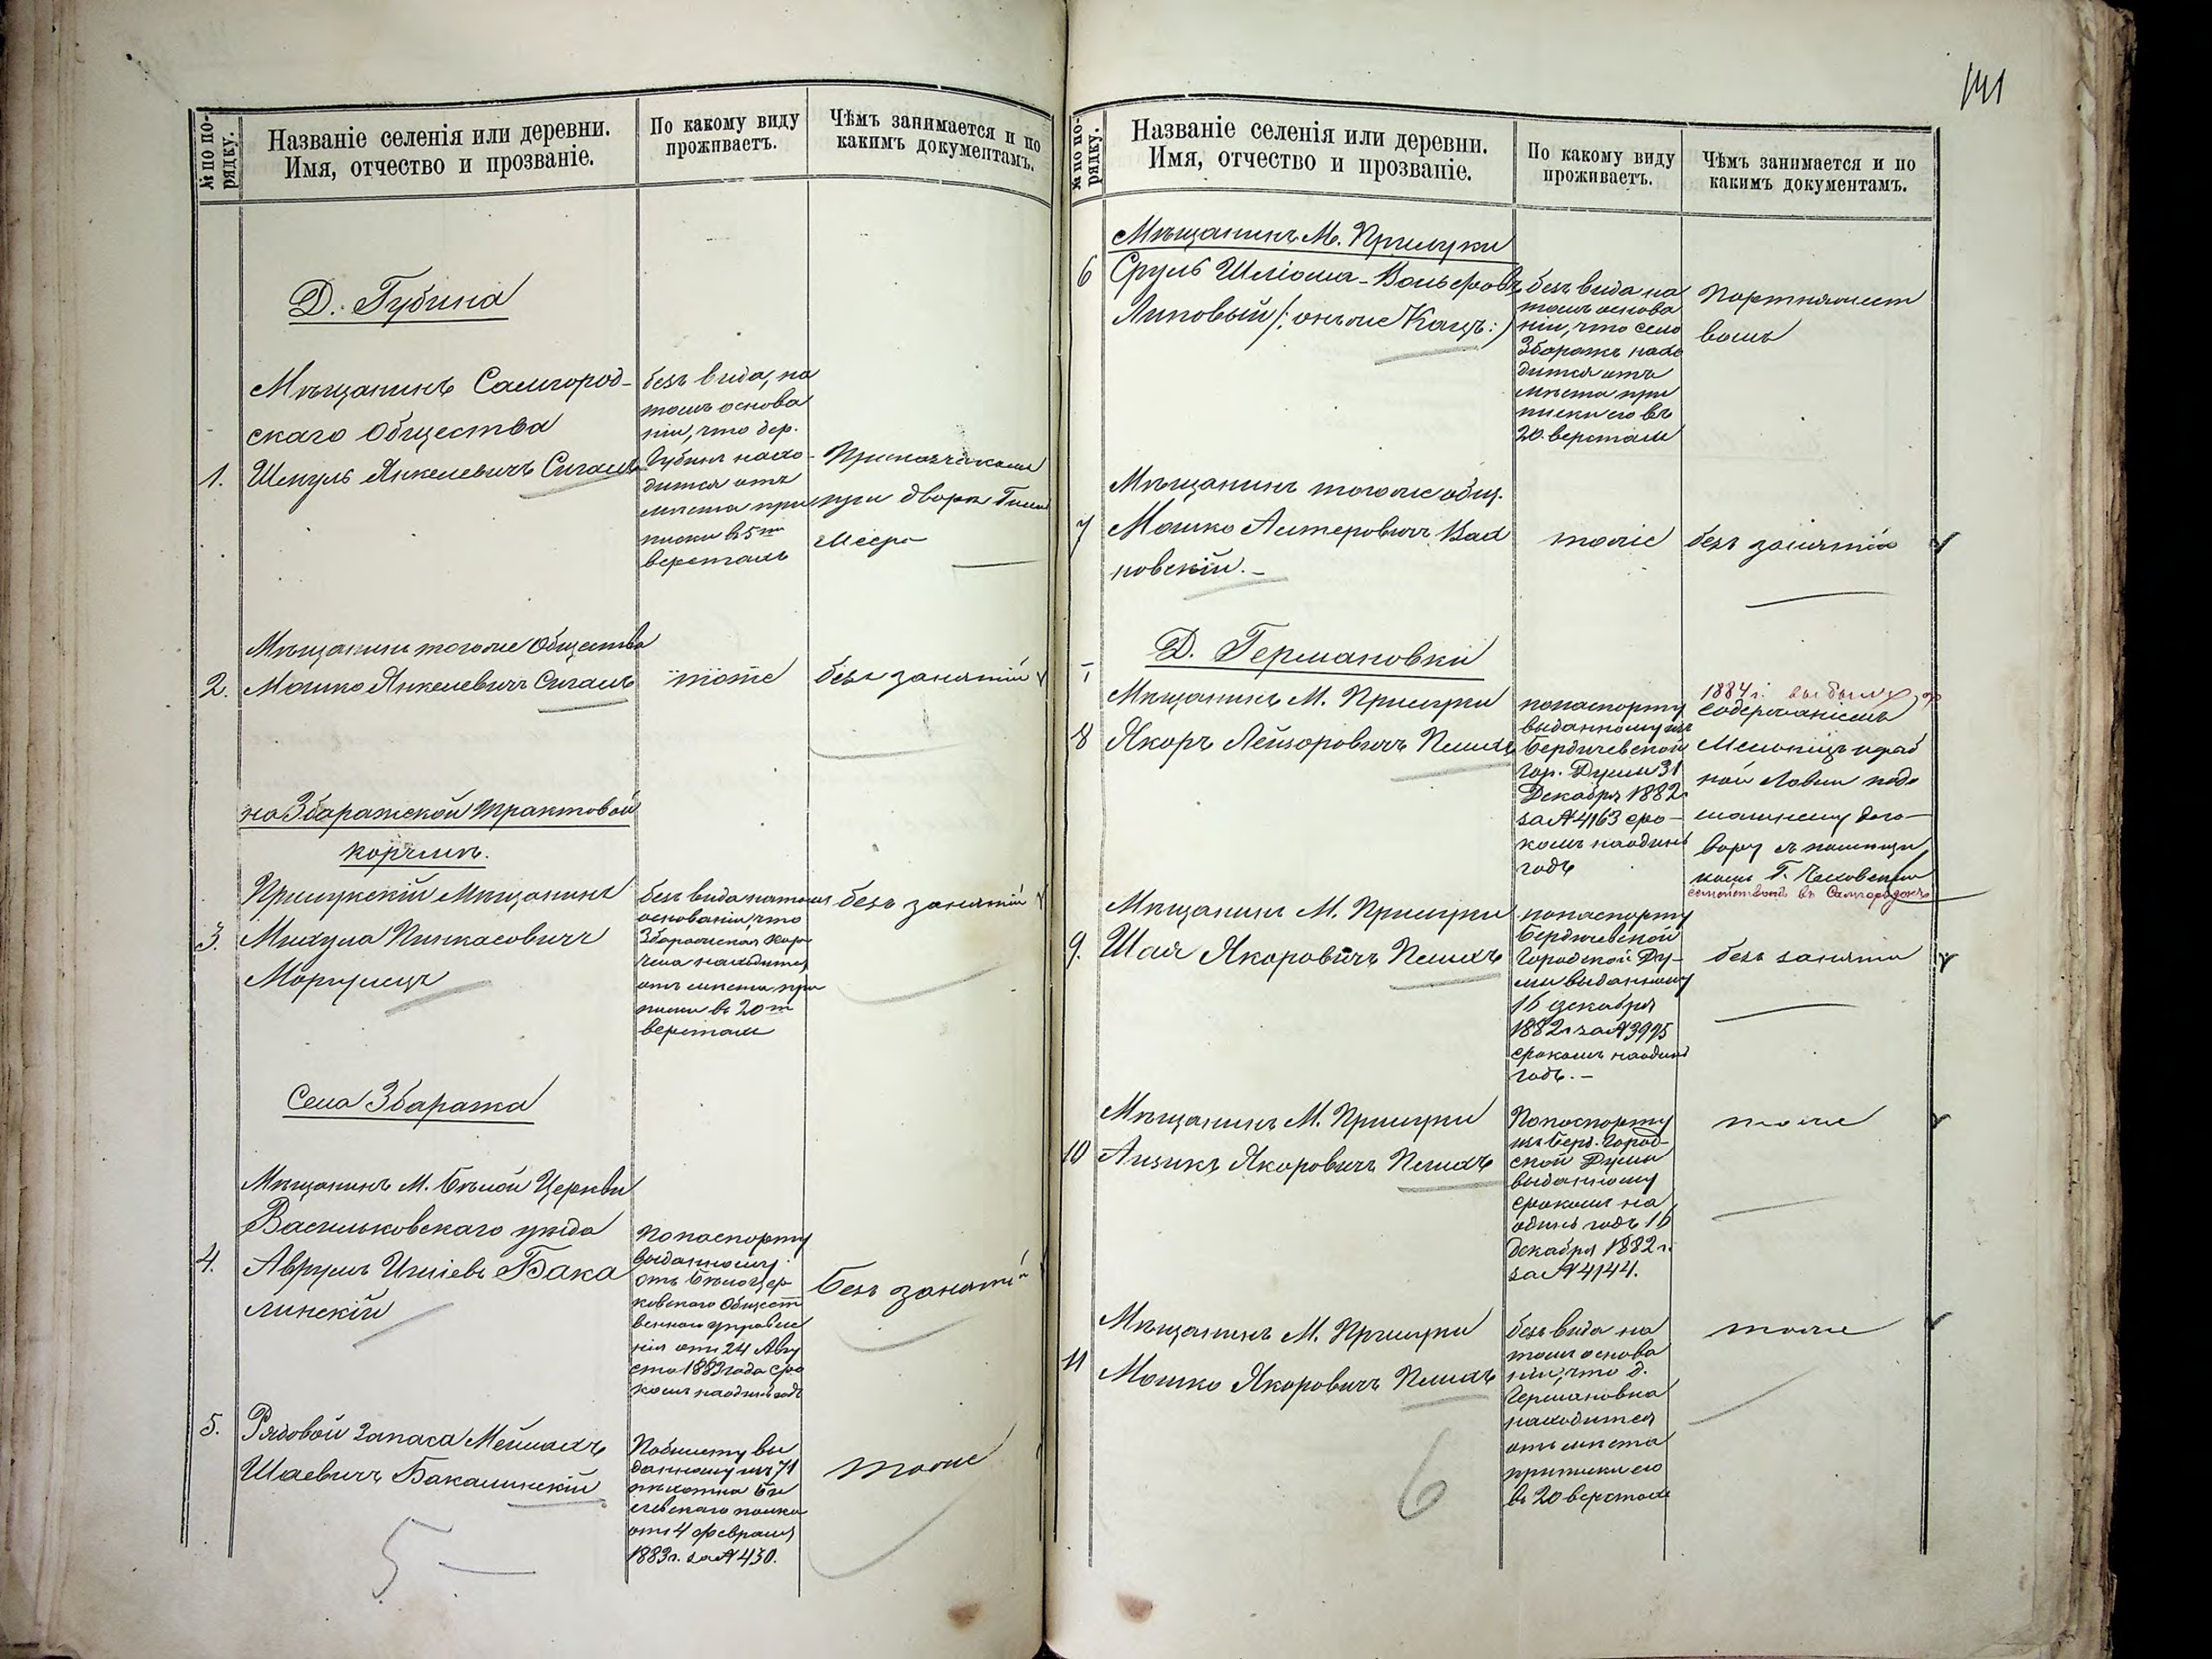 № по по-
рядку.
Названіе селенія или деревни.
Имя, отчество и прозваніе.
По какому виду
проживаетъ.
Чѣмъ занимается и по
какимъ документамъ.
Д. Губина
Мѣщанинъ Самгород-
скаго Общества
1. Шмуль Янкелевичъ Сигалъ
безъ вида, на
томъ основа
ніи, что дер.
Губинъ нахо-
дится отъ
мѣста при
писки въ 5ти
верстахъ
Приказчикомъ
при дворѣ
Мѣщанинъ тогоже Общества
2. Мошко Янкелевичъ Сигалъ
тоже
безъ занятій
на Збаражской трактовой
корчмѣ.
Прилукскій Мѣщанинъ
3. Михула Пинкасовичъ
безъ вида натомъ
основаніи, что
Збаражская кор
чма находится
отъ мѣста при
писки въ 20ти
верстахъ
безъ занятій
Села Збаража
Мѣщанинъ М. Бѣлой Церкви
Васильковскаго уѣзда
4. Аврумъ Ицкіевъ Бака
линскій
Попаспорту
выданному
отъ Бѣлоцер
ковскаго Общест
веннаго управле
нія отъ 24 Авгу
ста 1883 года сро
комъ наодинъ годъ
безъ занятій
5. Рядовой Запаса Мейлахъ
Шаевичъ Бакалинскій
Побилету вы
данному изъ 71
пѣхотна Бѣ
левскаго полка
отъ 4 февраля
1883г. за № 430.
тоже
5 —
141
№ по по-
рядку.
Названіе селенія или деревни.
Имя, отчество и прозваніе.
По какому виду
проживаетъ.
Чѣмъ занимается и по
какимъ документамъ.
Мѣщанинъ М. Прилуки
6 Сруль Шліома-Вольфовъ
Липовый /: онъже Кацъ :/
безъ вида на
томъ основа
ніи, что село
Збаражъ нахо
дится отъ
мѣста при
писки его въ
20. верстахъ
Портняжест
вомъ
Мѣщанинъ тогоже общ.
7 Мошко Алтеровичъ Вад
новскій. –
тоже
безъ занятія
Д. Германовки
Мѣщанинъ М. Прилуки
8 Якоръ Лейзоровичъ Пельхъ
попаспорту
выданному изъ
Бердичевской
Гор. Думы 31
Декабря 1882
за № 4163 сро-
комъ наодинъ
годъ
1884 г. выбылъ
содержаніемъ
Мельницъ
ной Лавки подо
машнему дого-
вору съ помещи
комъ Г.
въ Самгородокъ
Мѣщанинъ М. Прилуки
9. Шая Якоровичъ Пельхъ
попаспорту
Бердичевской
Городской Ду-
мы выданному
16 декабря
1882г за № 3975
срокомъ наодинъ
годъ. –
безъ занятія
Мѣщанинъ М. Прилуки
10 Аизикъ Якоровичъ Пельхъ
Попаспорту
изъ Берд. Город-
ской Думы
выданному
срокомъ на
одинъ годъ 16
декабря 1882 г.
за № 4144.
тоже
Мѣщанинъ М. Прилуки
11 Мошко Якоровичъ Пельхъ
безъ вида на
томъ основа
ніи, что д.
Германовка
находится
отъ мѣста
приписки его
въ 20 верстахъ
тоже
6